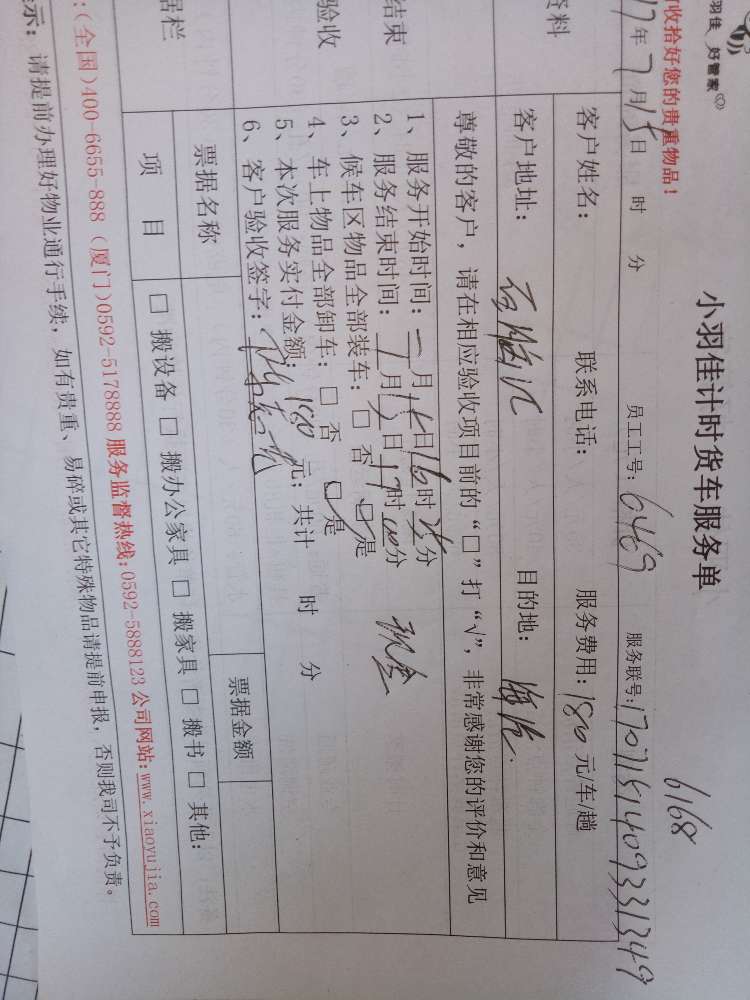 羽佳 好管家
收拾好您的贵重物品！
小羽佳计时货车服务单
6168
17年7月15日 时 分 员工工号：6469 服务联号：1707151409331349
客户姓名： 联系电话： 服务费用：180元/车/趟
客户地址： 目的地：
尊敬的客户，请在相应验收项目前的“□”打“√”，非常感谢您的评价和意见
1、服务开始时间： 月15日16时 分
2、服务结束时间：7月15日17时00分 现金
3、候车区物品全部装车：□ 否 ☑是
4、车上物品全部卸车：□ 否 ☑是
5、本次服务实付金额：180元；共计 时 分
6、客户验收签字：
结束
验收
票据名称 票据金额
据栏
项 目 □ 搬设备 □ 搬办公家具 □ 搬家具 □ 搬书 □ 其他：
：(全国)400-6655-888 (厦门)0592-5178888 服务监督热线：0592-5888123 公司网站：www.xiaoyujia.com
示：请提前办理好物业通行手续，如有贵重、易碎或其它特殊物品请提前申报，否则我司不予负责。